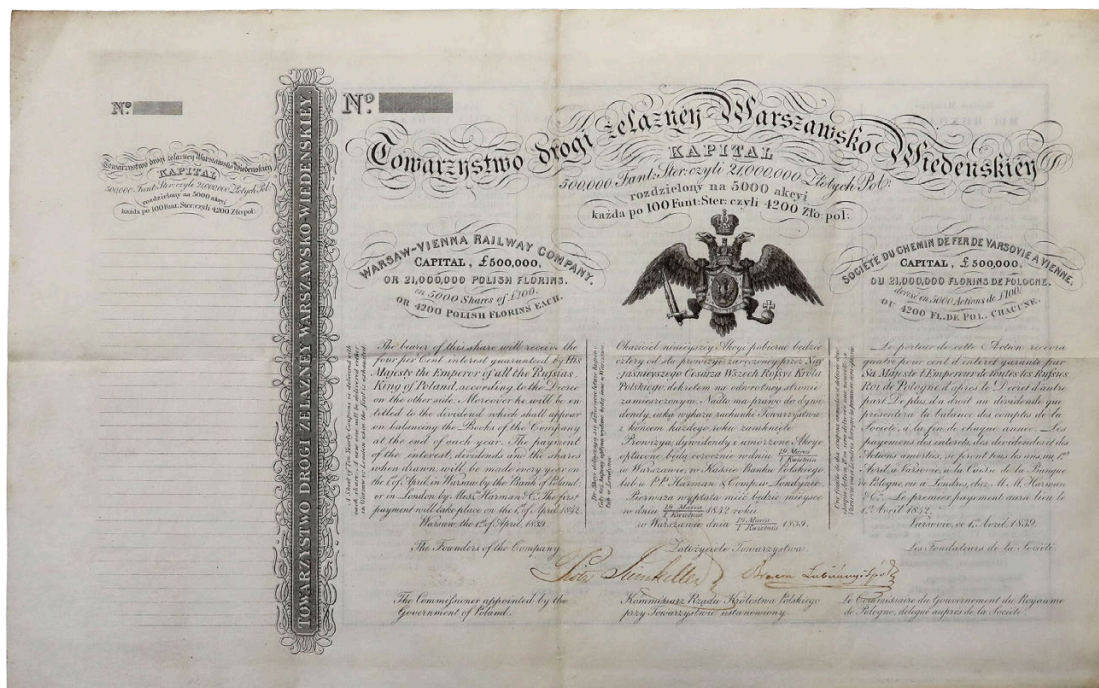 Nº
Towarzystwo drogi żelazney Warszawsko Wiedenskiey
KAPITAL
500,000. Funt: Ster: czyli 21,000,000 Złotych Pol:
rozdzielony na 5000 akcyi
każda po 100 Funt: Ster: czyli 4200 Zło: pol:
TOWARZYSTWO DROGI ŻELAZNEY WARSZAWSKO-WIEDENSKIEY
Nº
Towarzystwo drogi żelazney Warszawsko Wiedenskiey
KAPITAL
500,000. Funt: Ster: czyli 21,000,000 Złotych Pol:
rozdzielony na 5000 akcyi
każda po 100 Funt: Ster: czyli 4200 Zło: pol:
WARSAW-VIENNA RAILWAY COMPANY.
CAPITAL, £500,000.
OR 21,000,000 POLISH FLORINS.
en 5000 Shares of £100.
OR 4200 POLISH FLORINS EACH.
The bearer of this share will receive the
four per Cent interest guaranteed by His
Majesty the Emperor of all the Russias,
King of Poland, according to the Decree
on the other side. Moreover he will be en-
titled to the dividend which shall appear
on balancing the Books of the Company
at the end of each year. The payment
of the interest, dividends and the shares
when drawn, will be made every year on
the 1st of April in Warsaw by the Bank of Poland,
or in London by Messrs Harman & Co. The first
payment will take place on the 1st of April 1842.
Warsaw the 1st of April, 1839.
The Founders of the Company
The Commissioner appointed by the
Government of Poland.
Okaziciel ninieyszey Akcyi pobierac bedzie
cztery od sta prowizyi zaręczoney przez Nay-
jaśnieyszego Cesarza Wszech Rossyi Króla
Polskiego, dekretem na odwrotney stronie
zamieszczonym. Nadto ma prawo do dywi-
dendy, iaką wykażą rachunki Towarzystwa
z końcem każdego roku zamknięte
Prowizya, dywidendy i umorzone Akcye
opłacone będą corocznie w dniu 19 Marca / 1 Kwietnia
w Warszawie, w Kassie Banku Polskiego
lub u P.P. Harman & Comp. w Londynie.
Pierwsza wypłata mieć będzie mieysce
w dniu 19 Marca / 1 Kwietnia 1842 roku
w Warszawie dnia 19 Marca / 1 Kwietnia 1839.
Założyciele Towarzystwa.
Piotr Steinkeller
Bracia Łubieńscy i Sp.
Kommissarz Rządu Królestwa Polskiego
przy Towarzystwie ustanowiony.
SOCIÉTÉ DU CHEMIN DE FER DE VARSOVIE A VIENNE.
CAPITAL, £500,000.
OU 21,000,000 FLORINS DE POLOGNE.
divisé en 5000 Actions de £100.
OU 4200 FL. DE POL. CHACUNE.
Le porteur de cette Action recevra
quatre pour cent d'intérêt garantis par
Sa Majesté l'Empereur de toutes les Russies
Roi de Pologne d'après le Decret d'autre
part. De plus, il a droit au dividende que
présentera la balance des comptes de la
Société, à la fin de chaque année. Les
payemens des interets, des dividendes et des
Actions amorties, se feront tous les ans, au 1er
Avril, à Varsovie, à la Caisse de la Banque
de Pologne, ou à Londres, chez M.M. Harman
& Co. Le premier payement aura lieu le
1er Avril 1842.
Varsovie ce 1er Avril 1839.
Les Fondateurs de la Société.
Le Commissaire du Gouvernement du Royaume
de Pologne, délégué auprès de la Société.